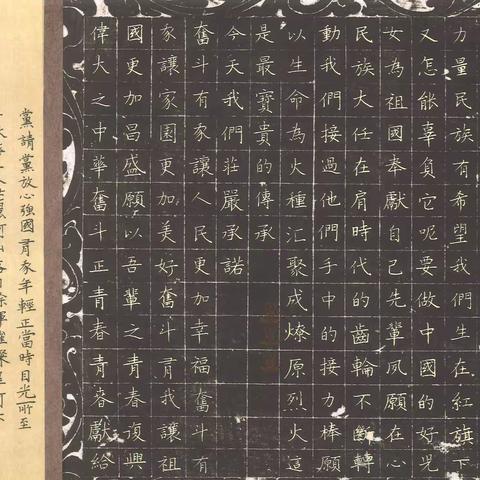 力量民族有希望我們生在紅旗下
又怎能辜負它呢要做中國的好兒
女為祖國奉獻自己先輩夙願在心
民族大任在肩時代的齒輪不斷轉
動我們接過他們手中的接力棒願
以生命為火種汇聚成燎原烈火這
是最寶貴的傳承
今天我們莊嚴承諾
奮斗有家讓人民更加幸福奮斗有
家讓家園更加美好奮斗有我讓祖
國更加昌盛願以吾輩之青春復興
偉大之中華奮斗正青春青春獻給
黨請黨放心強國有家年輕正當時目光所至